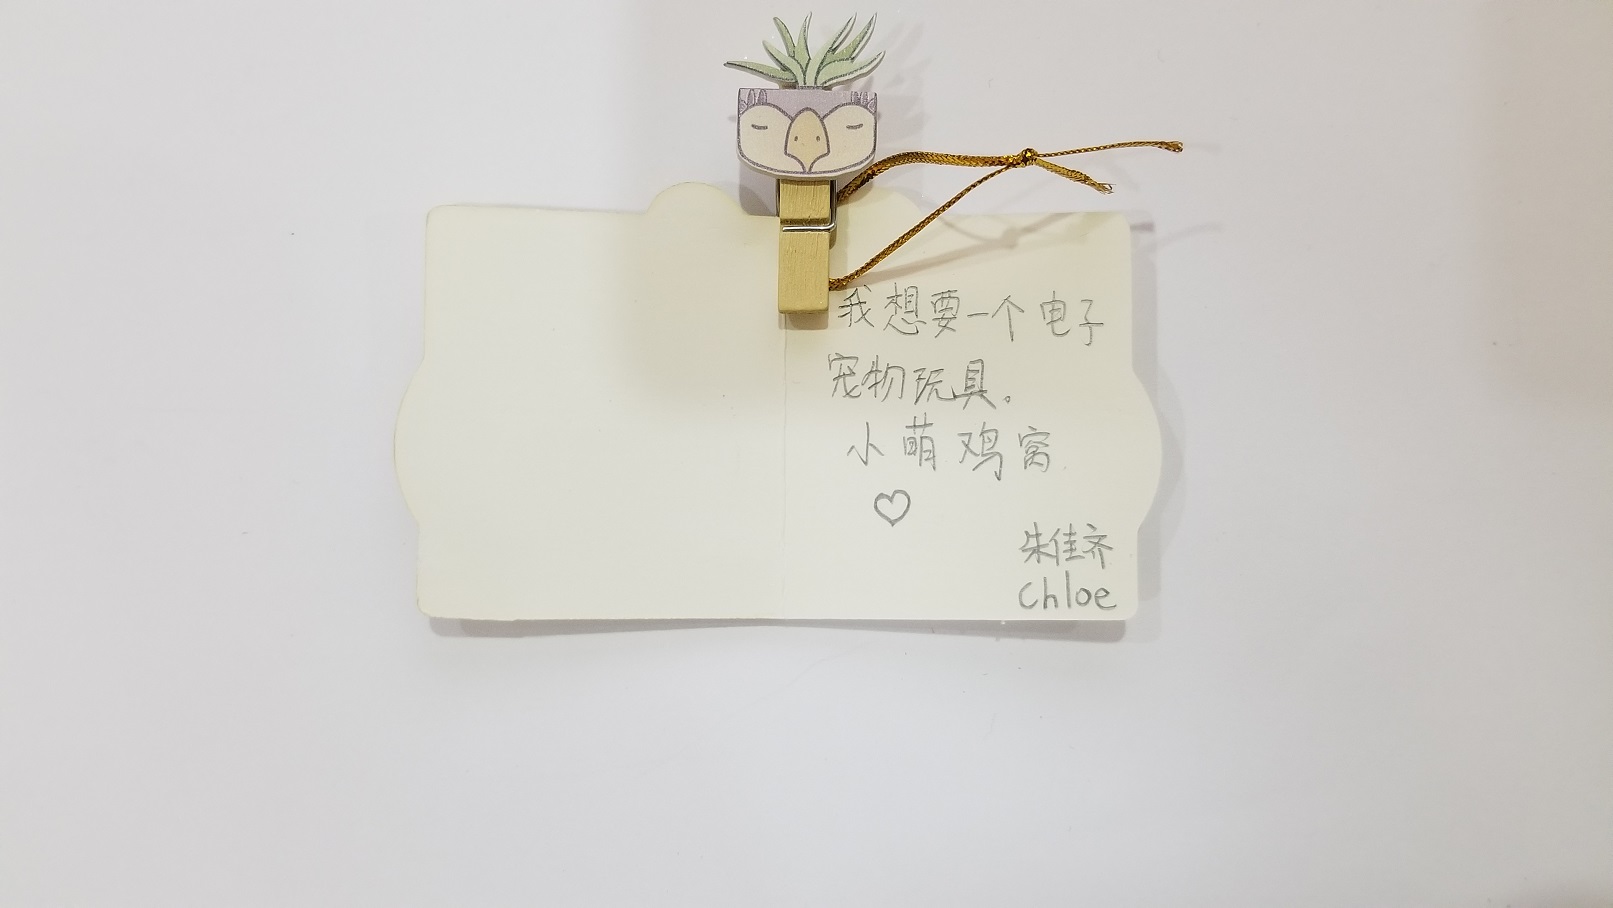 我想要一个电子
宠物玩具。
小萌鸡窝
♡
朱佳齐
Chloe